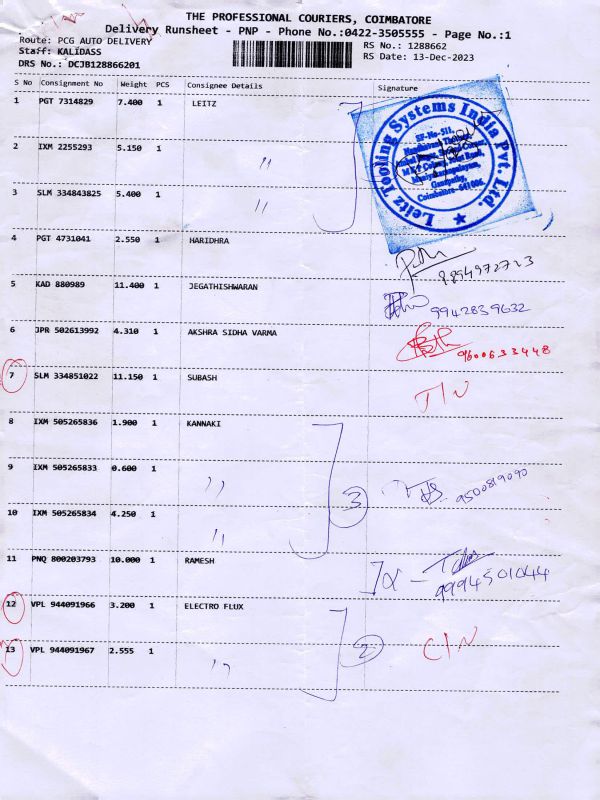 THE PROFESSIONAL COURIERS, COIMBATORE
Delivery Runsheet - PNP - Phone No.:0422-3505555 - Page No.:1
Route: PCG AUTO DELIVERY RS No.: 1288662
Staff: KALIDASS RS Date: 13-Dec-2023
DRS No.: DCJB128866201
S No Consignment No Weight PCS Consignee Details Signature
1 PGT 7314829 7.400 1 LEITZ
Leitz Tooling Systems India Pvt. Ltd.
SF-No-511,
Coimbatore - 641006.
2 IXM 2255293 5.150 1 "
3 SLM 334843825 5.400 1 "
4 PGT 4731041 2.550 1 HARIDHRA
9894972723
5 KAD 880989 11.400 1 JEGATHISHWARAN 9942839632
6 JPR 502613992 4.310 1 AKSHRA SIDHA VARMA 9600633448
7 SLM 334851022 11.150 1 SUBASH
8 IXM 505265836 1.900 1 KANNAKI
9 IXM 505265833 0.600 1 " 3 9500819090
10 IXM 505265834 4.250 1 "
11 PNQ 800203793 10.000 1 RAMESH 9994501044
12 VPL 944091966 3.200 1 ELECTRO FLUX
13 VPL 944091967 2.555 1 " 2 C/N